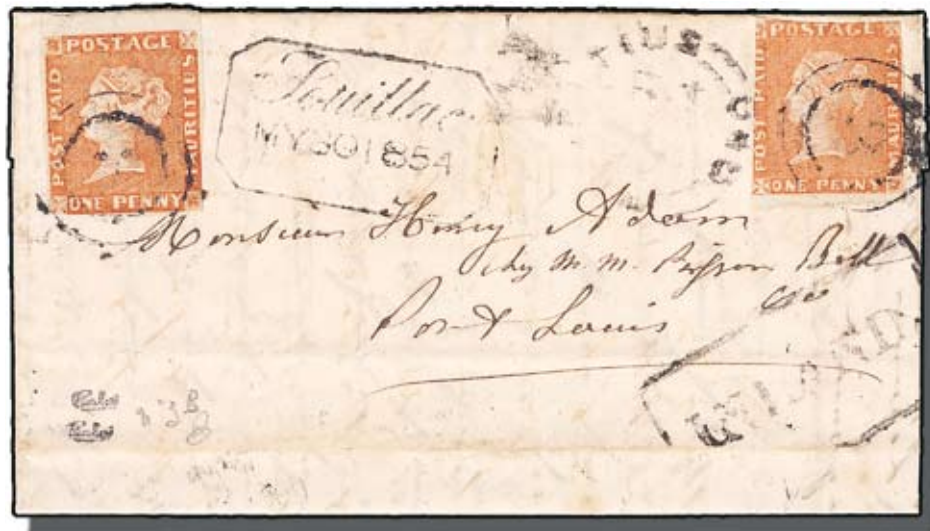 POSTAGE
POST PAID
MAURITIUS
ONE PENNY
Souillac
MY 30 1854
MAURITIUS
POSTAGE
POST PAID
MAURITIUS
ONE PENNY
Monsieur Henry Adam
chez M. M.
Port Louis
INLAND